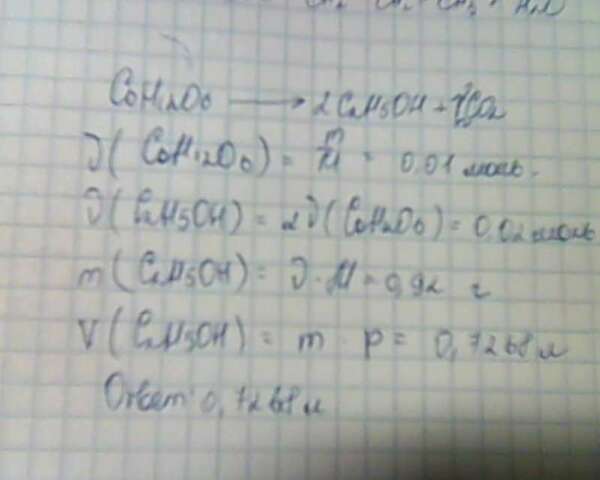 C6H12O6 → 2C2H5OH + 2CO2
ν(C6H12O6) = m/M = 0,01 моль.
ν(C2H5OH) = 2ν(C6H12O6) = 0,02 моль
m(C2H5OH) = ν · M = 0,92 г
V(C2H5OH) = m · ρ = 0,7268 л
Ответ: 0,7268 л